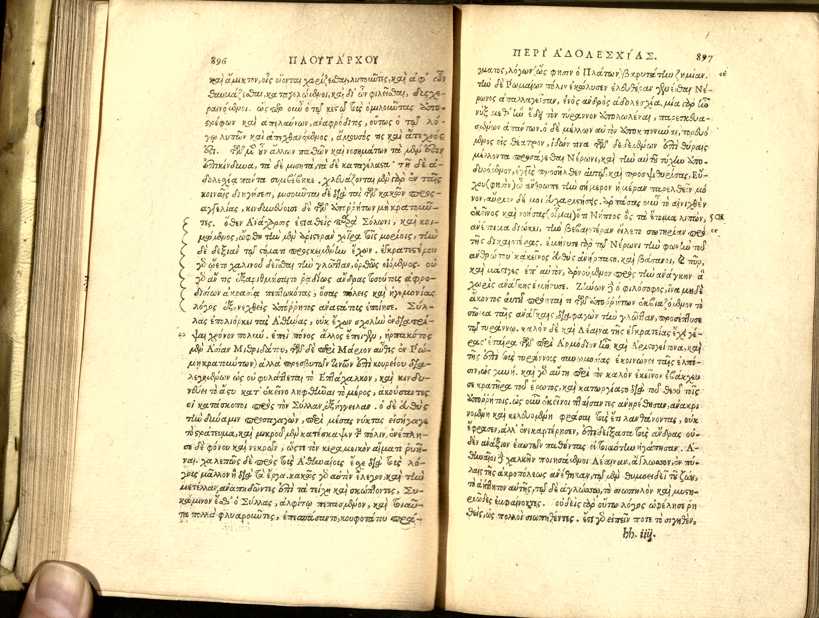 896 ΠΛΟΥΤΑΡΧΟΥ
καὶ ἄμικτον, οἷς οἴονται χαρίζεσθαι, λυποῦντες, καὶ ἀφ' ὧν
θαυμάζεσθαι, καταγελώμενοι, καὶ δι' ὧν φιλεῖσθαι, δυσχε-
ραινόμενοι. ὥσπερ οὖν ὁ τῷ κεστῷ τοὺς ὁμιλοῦντας ἀπο-
στρέφων καὶ ἀπελαύνων, ἀναφρόδιτος, οὕτως ὁ τῷ λό-
γῳ λυπῶν καὶ ἀπεχθανόμενος, ἄμουσός τις καὶ ἄτεχνός
ἐστι. τῶν μὲν γὰρ ἄλλων παθῶν καὶ νοσημάτων τὰ μὲν ἐστὶν
ἐπικίνδυνα, τὰ δὲ μισητὰ, τὰ δὲ καταγέλαστα· τῇ δὲ ἀ-
δολεσχίᾳ πάντα συμβέβηκε. χλευάζονται μὲν γὰρ ἐν ταῖς
κοιναῖς διηγήσεσι, μισοῦνται δὲ διὰ τὰς τῶν κακῶν προσ-
αγγελίας, κινδυνεύουσι δὲ τῶν ἀπορρήτων μὴ κρατοῦν-
τες. ὅθεν Ἀνάχαρσις ἑστιαθεὶς παρὰ Σόλωνι, καὶ κοι-
μώμενος, ὤφθη τὴν μὲν ἀριστερὰν χεῖρα τοῖς μορίοις, τὴν
δὲ δεξιὰν τῷ στόματι προσκειμένην ἔχων. ἐγκρατεστέρου
γὰρ ᾤετο χαλινοῦ δεῖσθαι τὴν γλῶτταν, ὀρθῶς οἰόμενος. οὐ
γὰρ ἄν τις ἐξαριθμήσαιτο ῥᾳδίως ἄνδρας τοσούτους ἀφρο-
δισίων ἀκρασίᾳ πεπτωκότας, ὅσας πόλεις καὶ ἡγεμονίας
λόγος ἐξενεχθεὶς ἀπόρρητος ἀναστάτους ἐποίησε. Σύλ-
λας ἐπολιόρκει τὰς Ἀθήνας, οὐκ ἔχων σχολὴν ἐνδιατρί-
ψαι χρόνον πολύν. ἐπεὶ πόνος ἄλλος ἔπειγεν, ἡρπακότος
μὲν Ἀσίαν Μιθριδάτου, τῶν δὲ περὶ Μάριον αὖθις ἐν Ῥώ-
μῃ κρατούντων. ἀλλὰ πρεσβυτῶν τινῶν ἐπὶ κουρείου δια-
λεγομένων ὡς οὐ φυλάττεται τὸ Ἑπτάχαλκον, καὶ κινδυ-
νεύει τὸ ἄστυ κατ' ἐκεῖνο ληφθῆναι τὸ μέρος, ἀκούσαντες
οἱ κατάσκοποι πρὸς τὸν Σύλλαν ἐξήγγειλαν. ὁ δὲ εὐθὺς
τὴν δύναμιν προσαγαγὼν, περὶ μέσας νύκτας εἰσήγαγε
τὸ στράτευμα, καὶ μικροῦ μὲν κατέσκαψεν τὴν πόλιν, ἐνέπλη-
σε δὲ φόνου καὶ νεκρῶν, ὥστε τὸν κεραμεικὸν αἵματι ῥυῆ-
ναι. χαλεπῶς δὲ πρὸς τοὺς Ἀθηναίους ἔσχε διὰ τοὺς λό-
γους μᾶλλον ἢ διὰ τὰ ἔργα. κακῶς γὰρ αὐτὸν ἔλεγον, καὶ τὴν
μετέλλαν, ἀναπηδῶντες ἐπὶ τὰ τείχη καὶ σκώπτοντες, Συ-
κάμινον ἔσθ' ὁ Σύλλας, ἀλφίτῳ πεπασμένον, καὶ τοιαῦ-
τα πολλὰ φλυαροῦντες, ἐπεσπάσαντο, κουφοτάτου πρά-
ΠΕΡΙ ἈΔΟΛΕΣΧΙΑΣ. 897
γματος, λόγων (ὥς φησιν ὁ Πλάτων) βαρυτάτην ζημίαν.
τὴν δὲ Ῥωμαίων πόλιν ἐκώλυσεν ἐλευθέραν γενέσθαι Νέ-
ρωνος ἀπαλλαγεῖσαν, ἑνὸς ἀνδρὸς ἀδολεσχία. μία γὰρ ἦν
νὺξ μεθ' ἣν ἔδει τὸν τύραννον ἀπολωλέναι, παρεσκευα-
σμένων ἁπάντων. ὁ δὲ μέλλων αὐτὸν ἀποκτιννύναι, πορευό-
μενος εἰς θέατρον, ἰδών τινα τῶν δεδεμένων ἐπὶ θύραις
μέλλοντα προσάγεσθαι Νέρωνι, καὶ τὴν αὑτοῦ τύχην ἀπο-
δυρόμενον, ἐγγὺς προσῆλθεν αὐτῷ, καὶ προσψιθυρίσας, Εὔ-
χου (φησὶν) ὦ ἄνθρωπε τὴν σήμερον ἡμέραν παρελθεῖν μό-
νον, αὔριον δέ μοι εὐχαριστήσεις. ἁρπάσας οὖν τὸ αἰνιχθὲν
ἐκεῖνος καὶ νοήσας (οἶμαι) ὅτι Νήπιος ὃς τὰ ἕτοιμα λιπὼν,
ἀνέτοιμα διώκει, τὴν βεβαιοτέραν εἵλετο σωτηρίαν πρὸ
τῆς δικαιοτέρας. ἐμήνυσε γὰρ τῷ Νέρωνι τὴν φωνὴν τοῦ
ἀνθρώπου. κἀκεῖνος εὐθὺς ἀνήρπαστο, καὶ βάσανοι, καὶ πῦρ,
καὶ μάστιγες ἐπ' αὐτὸν, ἀρνούμενον πρὸς τὴν ἀνάγκην ἃ
χωρὶς ἀνάγκης ἐμήνυσε. Ζήνων δὲ ὁ φιλόσοφος, ἵνα μηδὲ
ἄκοντος αὐτοῦ πρόηταί τι τῶν ἀπορρήτων ἐκβιαζόμενον τὸ
σῶμα ταῖς ἀνάγκαις, διαφαγὼν τὴν γλῶτταν, προσέπτυσε
τῷ τυράννῳ. καλὸν δὲ καὶ Λέαινα τῆς ἐγκρατείας ἔχει γέ-
ρας. ἑταίρα τῶν περὶ Ἁρμόδιον ἦν καὶ Ἀριστογείτονα, καὶ
τῆς ἐπὶ τοὺς τυράννους συνωμοσίας ἐκοινώνει ταῖς ἐλπί-
σιν, ὡς γυνή. καὶ γὰρ αὕτη περὶ τὸν καλὸν ἐκεῖνον ἐβάκχευ-
σε κρατῆρα τοῦ ἔρωτος, καὶ κατωργίαστο διὰ τοῦ θεοῦ τοῖς
ἀπορρήτοις. ὡς οὖν ἐκεῖνοι πταίσαντες ἀνῃρέθησαν, ἀνακρι-
νομένη καὶ κελευομένη φράσαι τοὺς ἔτι λανθάνοντας, οὐκ
ἔφρασεν, ἀλλ' ἐνεκαρτέρησεν, ἐπιδείξασα τοὺς ἄνδρας οὐ-
δὲν ἀνάξιον ἑαυτῶν παθόντας εἰ τοιαύτην ἠγάπησαν. Ἀ-
θηναῖοι δὲ χαλκῆν ποιησάμενοι Λέαιναν, ἄγλωσσον, ἐν πύ-
λαις τῆς ἀκροπόλεως ἀνέθηκαν, τῷ μὲν θυμοειδεῖ τοῦ ζώου,
τὸ ἀήττητον αὐτῆς, τῷ δὲ ἀγλώσσῳ, τὸ σιωπηλὸν καὶ μυστη-
ριῶδες ἐμφαίνοντες. οὐδεὶς γὰρ οὕτω λόγος ὠφέλησε ῥη-
θεὶς, ὡς πολλοὶ σιωπηθέντες. ἔστι γὰρ εἰπεῖν ποτε τὸ σιγηθὲν,
hh. iiij.